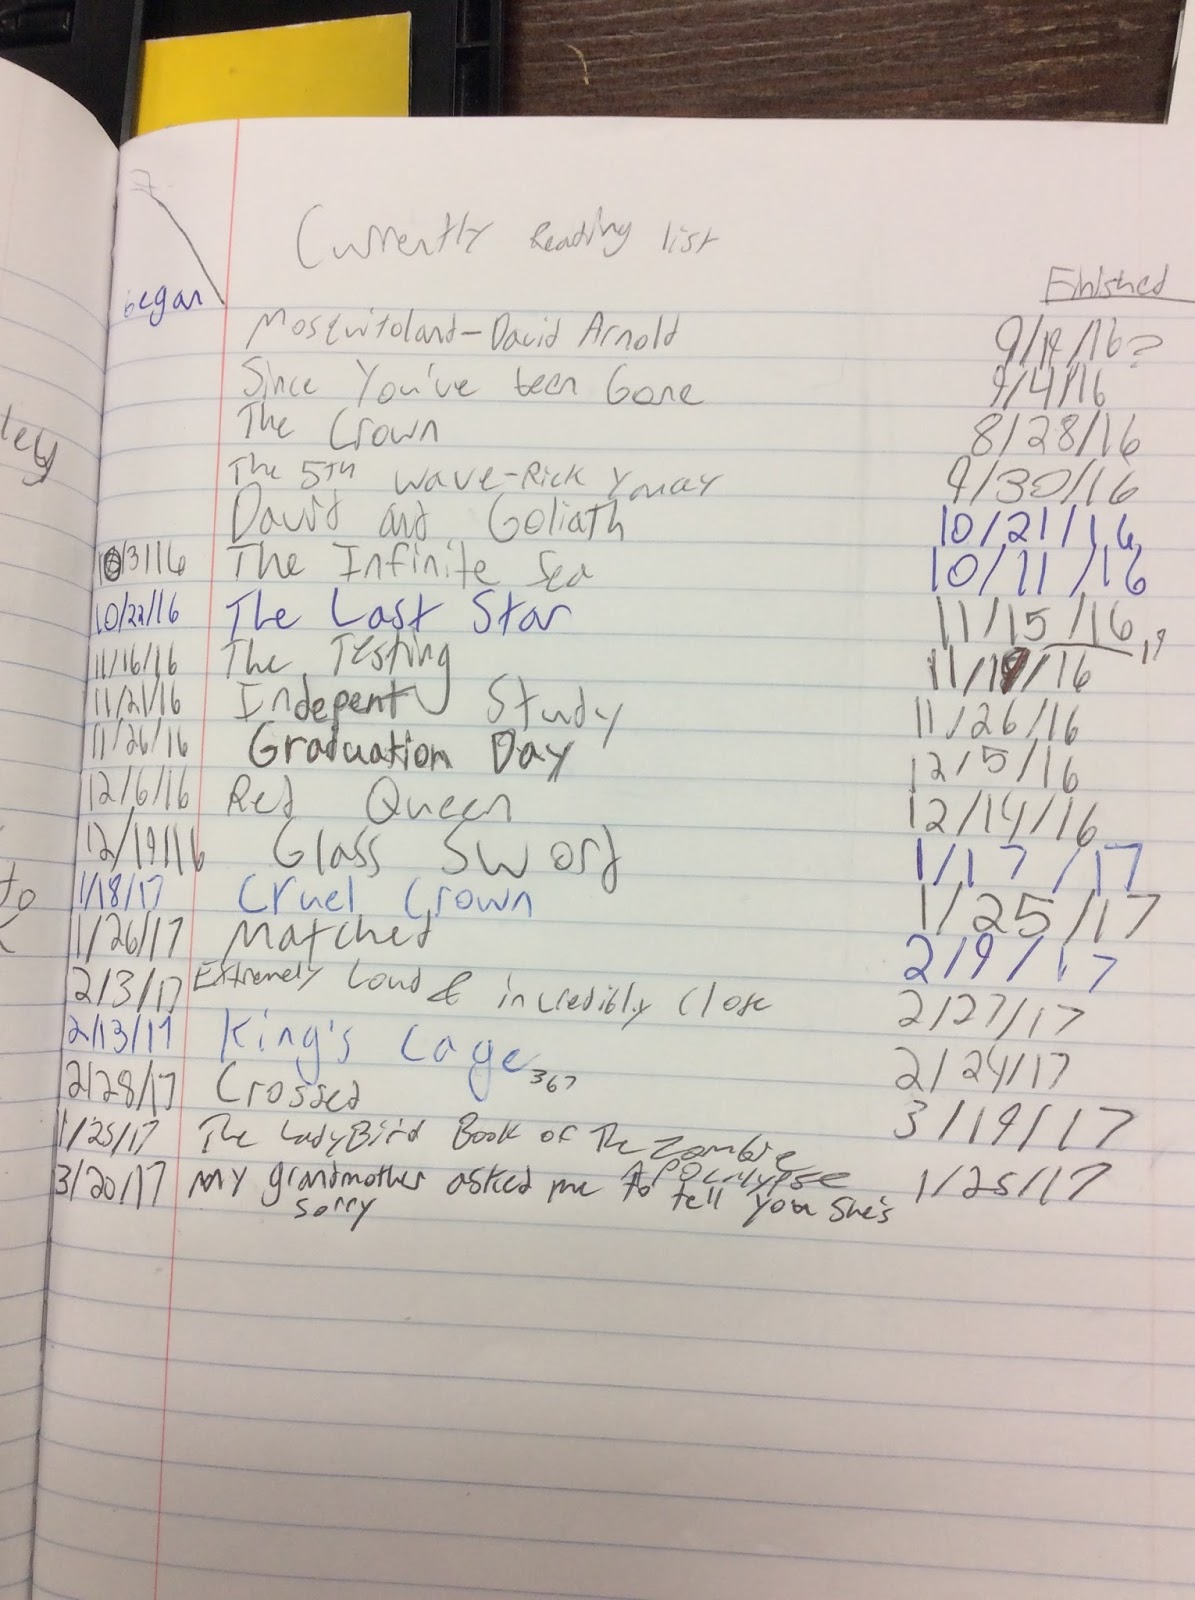 7
Currently Reading list
began Finished
Mosquitoland - David Arnold 9/18/16?
Since You've been Gone 9/4/16
The Crown 8/28/16
The 5Th wave - Rick Yancey 9/30/16
David and Goliath 10/21/16
10/3/16 The Infinite Sea 10/11/16
10/22/16 The Last Star 11/15/16
11/16/16 The Testing 11/19/16 19
11/21/16 Indepent Study 11/26/16
11/26/16 Graduation Day 12/5/16
12/6/16 Red Queen 12/14/16
12/19/16 Glass Sword 1/17/17
1/18/17 Cruel Crown 1/25/17
1/26/17 Matched 2/9/17
2/3/17 Extremely Loud & incredibly Close 2/27/17
2/13/17 King's Cage 367 2/24/17
2/28/17 Crossed 3/19/17
1/25/17 The LadyBird Book of The Zombie
Apocalypse 1/25/17
3/20/17 My grandmother asked me to tell you she's
sorry
ley
to